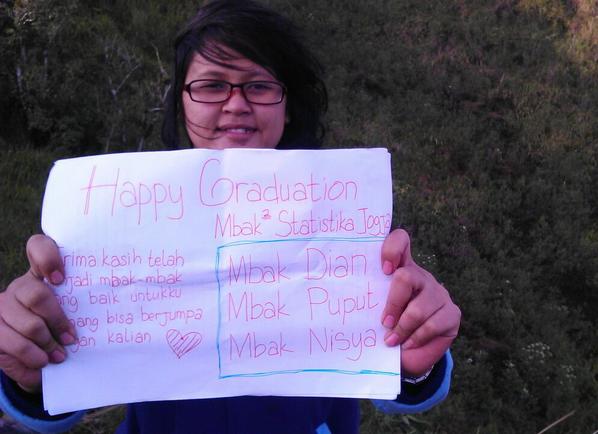 Happy Graduation
Mbak² Statistika Jogja
rima kasih telah
jadi mbak-mbak
ang baik untukku
nang bisa berjumpa
gan kalian
Mbak Dian
Mbak Puput
Mbak Nisya